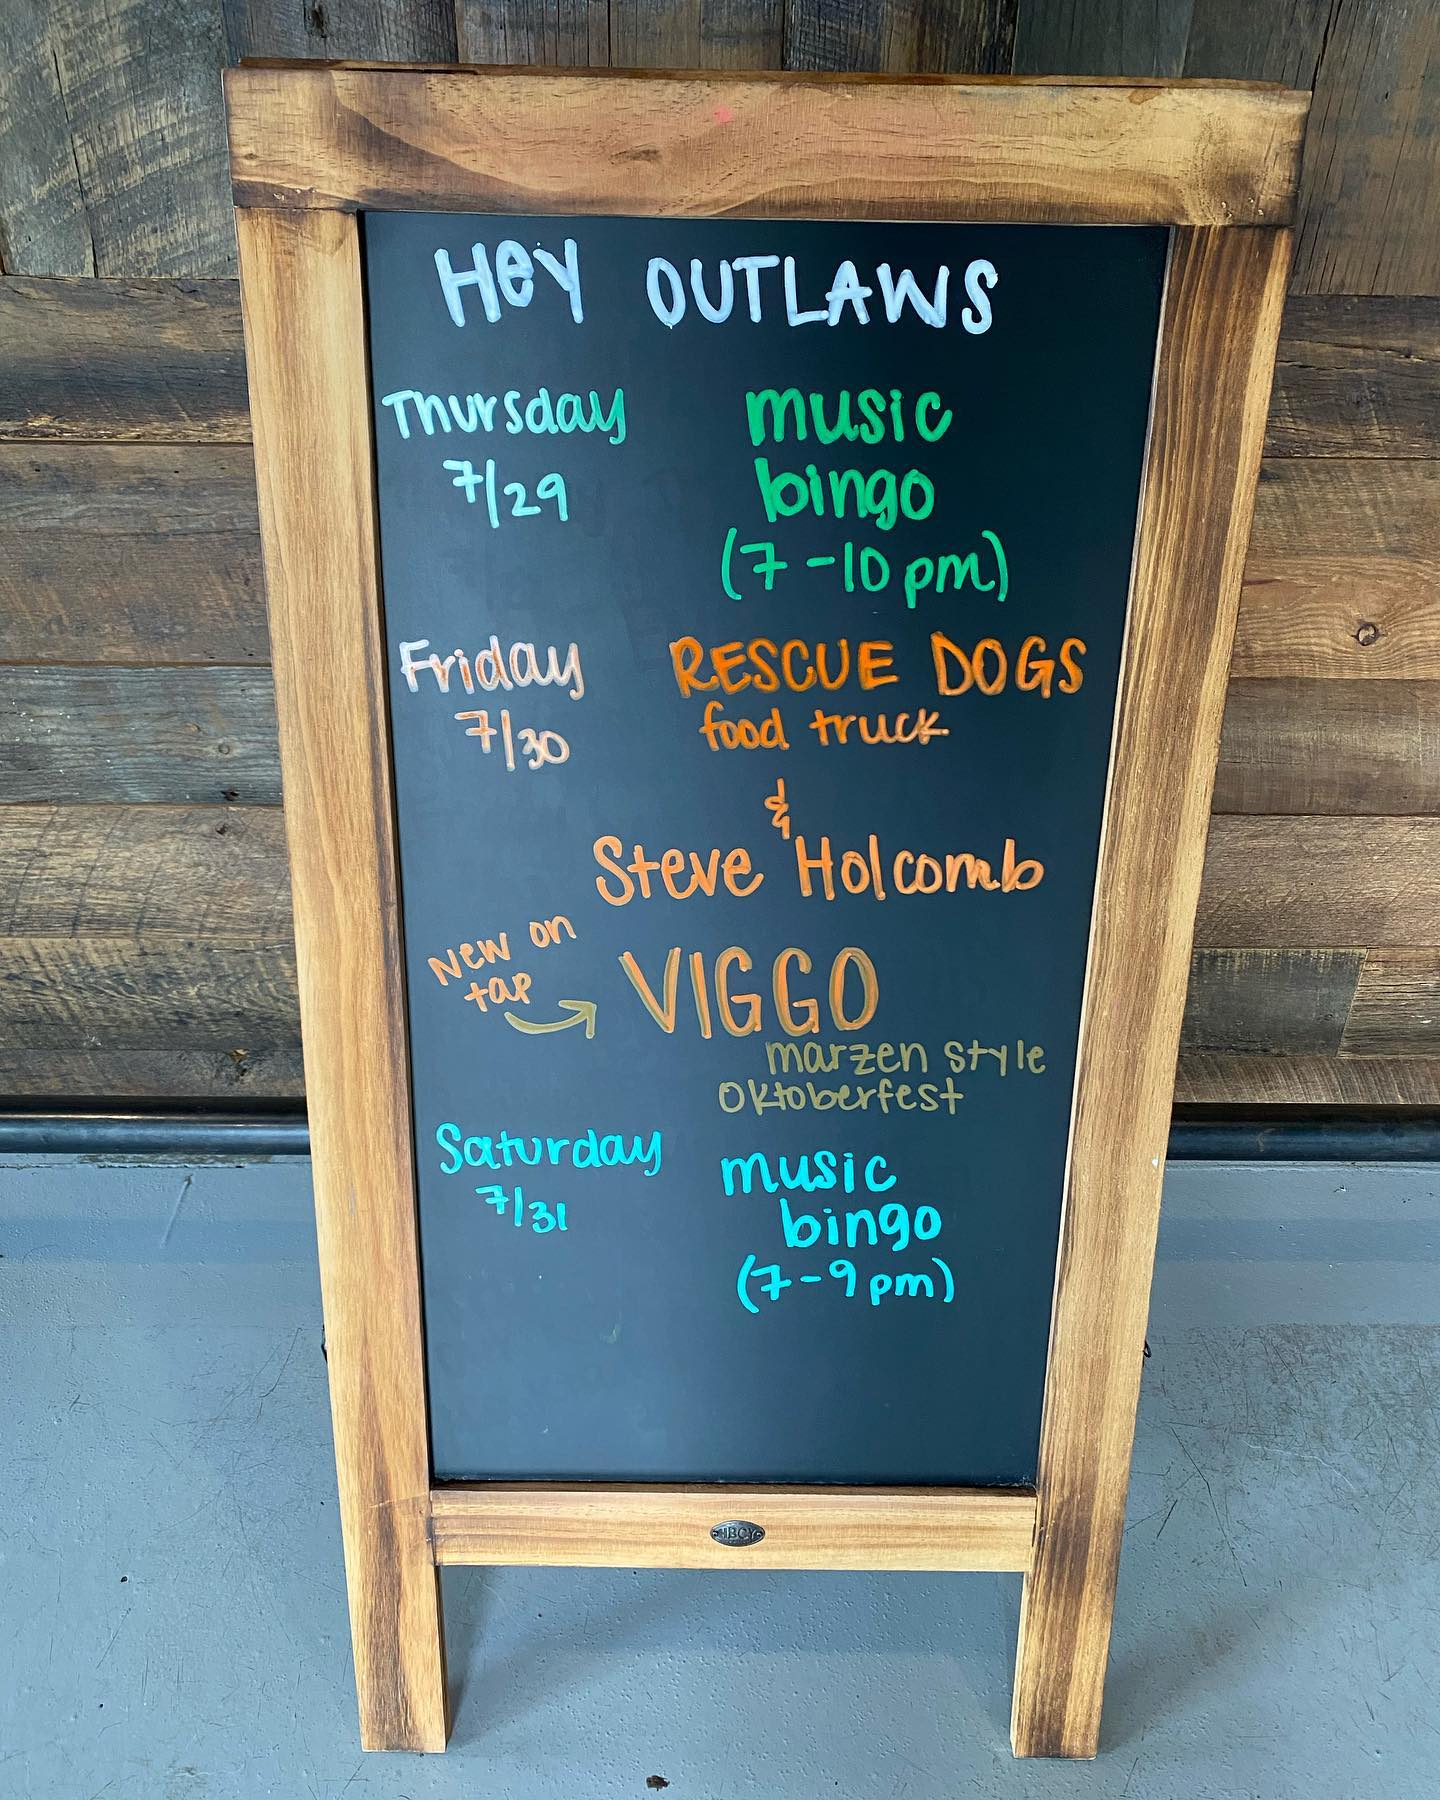 Hey OUTLAWS
Thursday music
7/29 bingo
(7-10 pm)
Friday RESCUE DOGS
7/30 food truck
&
Steve Holcomb
New on
tap VIGGO
marzen style
Oktoberfest
Saturday music
7/31 bingo
(7-9 pm)
HBCY